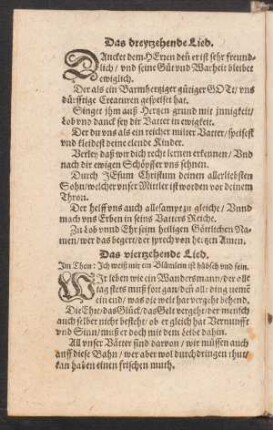 Das dreyzehende Lied.
DAncket dem HErren deñ er ist sehr freund-
lich / vnd seine Güt vnd Warheit bleibet
ewiglich.
Der als ein Barmhertziger gütiger GOTt / vns
dürfftige Creaturen gespeiset hat.
Singet jhm auß Hertzen grund mit jnnigkeit /
Lob vnd danck sey dir Vatter in ewigkeit.
Der du vns als ein reicher milter Vatter / speisest
vnd kleidest deine elende Kinder.
Verley daß wir dich recht lernen erkennen / Vnd
nach dir ewigen Schöpffer vns sehnen.
Durch JEsum Christum deinen allerliebsten
Sohn / welcher vnser Mittler ist worden vor deinem
Thron.
Der helff vns auch allesampt zu gleiche / Vnnd
mach vns Erben in seins Vatters Reiche.
Zu Lob vnnd Ehr seim heiligen Göttlichen Na-
men / wer das begert / der sprech von hertzen Amen.
Das viertzehende Lied.
Im Thon: Ich weiß mir ein Blümlein ist hübsch vnd fein.
WIr leben wie ein Wandersmann / der alle
tag stets muß fort gan / deñ all: ding nemẽ
ein end / was ole weit hat vergeht behend.
Die Ehr / das Glück / das Gelt vergeht / der mensch
auch selber nicht besteht / ob er gleich hat Vernunfft
vnd Sinn / muß er doch mit dem Leibe dahin.
All vnser Vätter sind darvon / wir müssen auch
auff diese Bahn / wer aber wol durchdringen thut /
kan haben einen frischen muth.